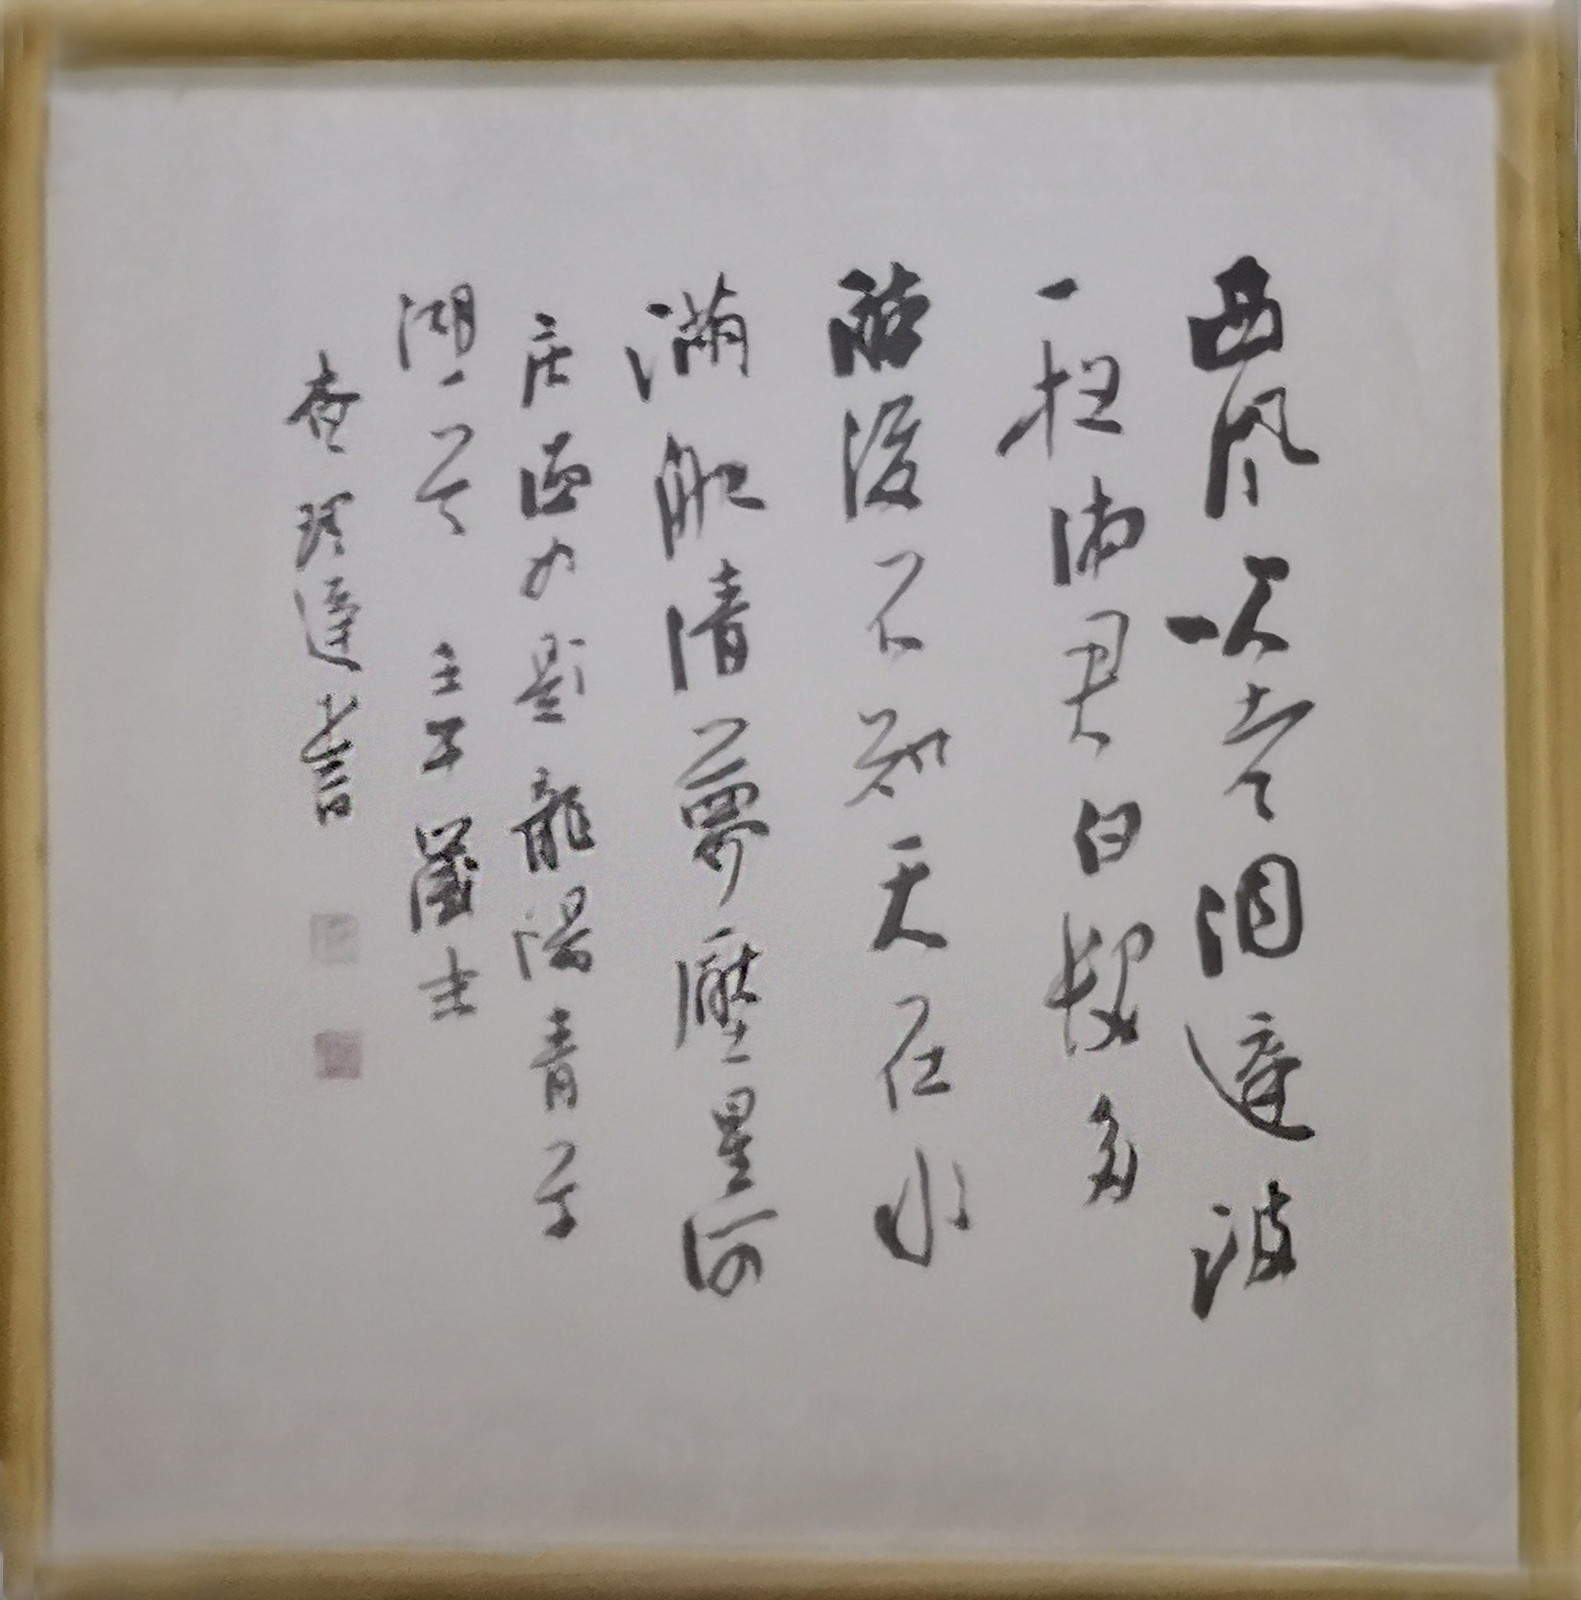 西風吹老洞庭波
一夜湘君白髮多
醉後不知天在水
滿船清夢壓星河
唐温如題龍陽青草
湖一首 壬子歲
書